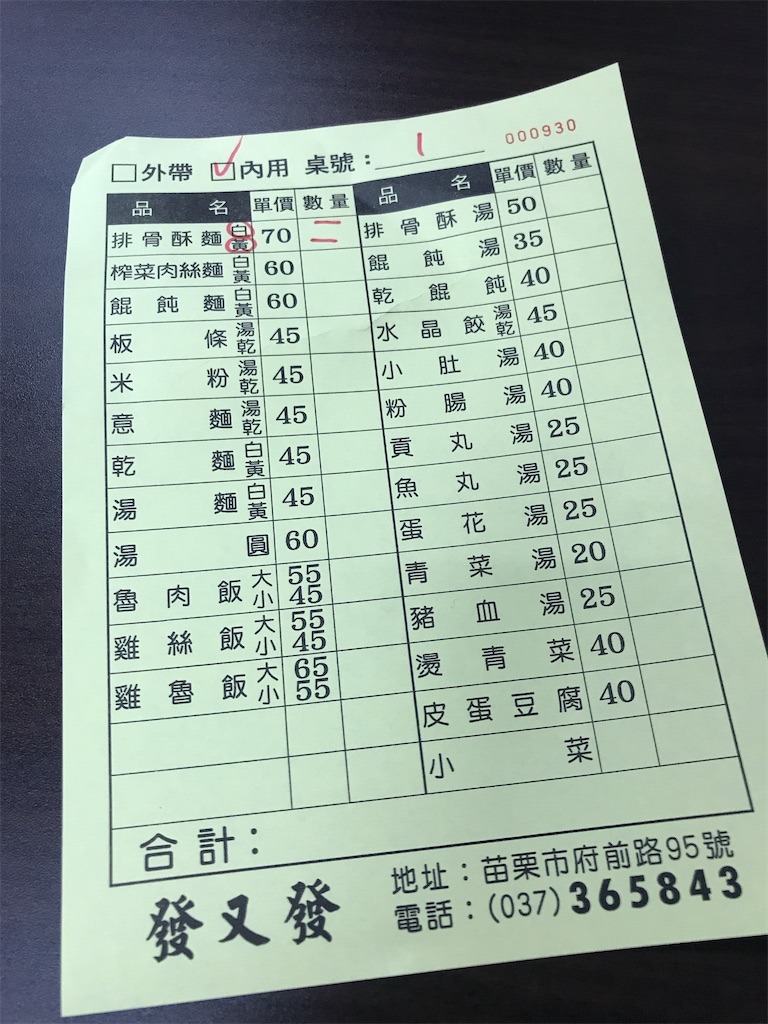 □外帶 ☑內用 桌號：1 000930
品名 單價 數量
排骨酥麵 白 黃 70 二
榨菜肉絲麵 白 黃 60
餛飩麵 白 黃 60
板條 湯 乾 45
米粉 湯 乾 45
意麵 湯 乾 45
乾麵 白 黃 45
湯麵 白 黃 45
湯圓 60
魯肉飯 大 55
小 45
雞絲飯 大 55
小 45
雞魯飯 大 65
小 55
品名 單價 數量
排骨酥湯 50
餛飩湯 35
乾餛飩 40
水晶餃 湯 乾 45
小肚湯 40
粉腸湯 40
貢丸湯 25
魚丸湯 25
蛋花湯 25
青菜湯 20
豬血湯 25
燙青菜 40
皮蛋豆腐 40
小菜
合計：
發又發
地址：苗栗市府前路95號
電話：(037)365843